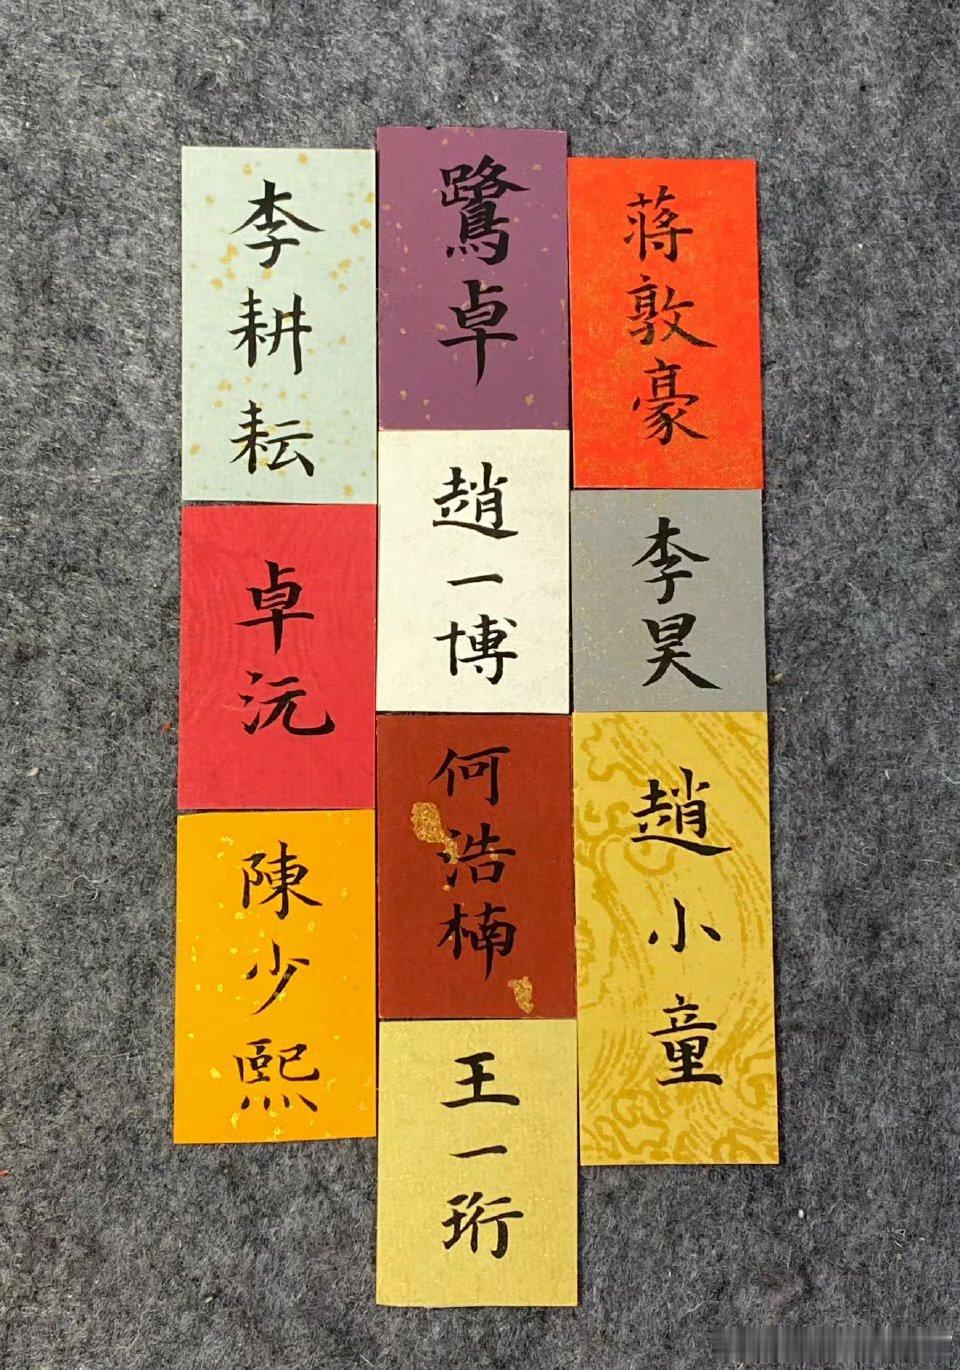 李耕耘
鷺卓
蔣敦豪
趙一博
李昊
卓沅
何浩楠
趙小童
陳少熙
王一珩